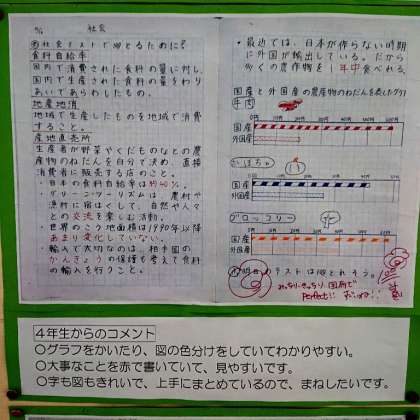 社会
◎社会テストで㊿とるために?
食料自給率
国内で消費された食料の量に対し、
国内で生産された食料の量をわり
あいであらわしたもの。
地産地消
地域で生産したものを地域で消費
すること。
産地直売所
生産者が野菜やくだものなどの農
産物のねだんを自分で決め、直接
消費者に販売する店のこと。
・日本の食料自給率は約40%。
・グリーンツーリズムは、農村や
漁村に宿はくして、自然や人々
との交流を楽しむ活動。
・世界のこう地面積は1990年以降
あまり変化していない。
・輸入で大切なのは、相手国の
かんきょうの保護も考えて食料
の輸入を行うこと。
・最近では、日本が作らない時期
に外国が輸出している。だから
多くの農作物を1年中食べれる。
国産と外国産の農産物のねだんを表したグラフ
牛肉
国産
外国産
かぼちゃ
国産
外国産
ブロッコリー
国産
外国産
テストは㊿とれそう。
perfect!!
4年生からのコメント
○グラフをかいたり、図の色分けをしていてわかりやすい。
○大事なことを赤で書いていて、見やすいです。
○字も図もきれいで、上手にまとめているので、まねしたいです。